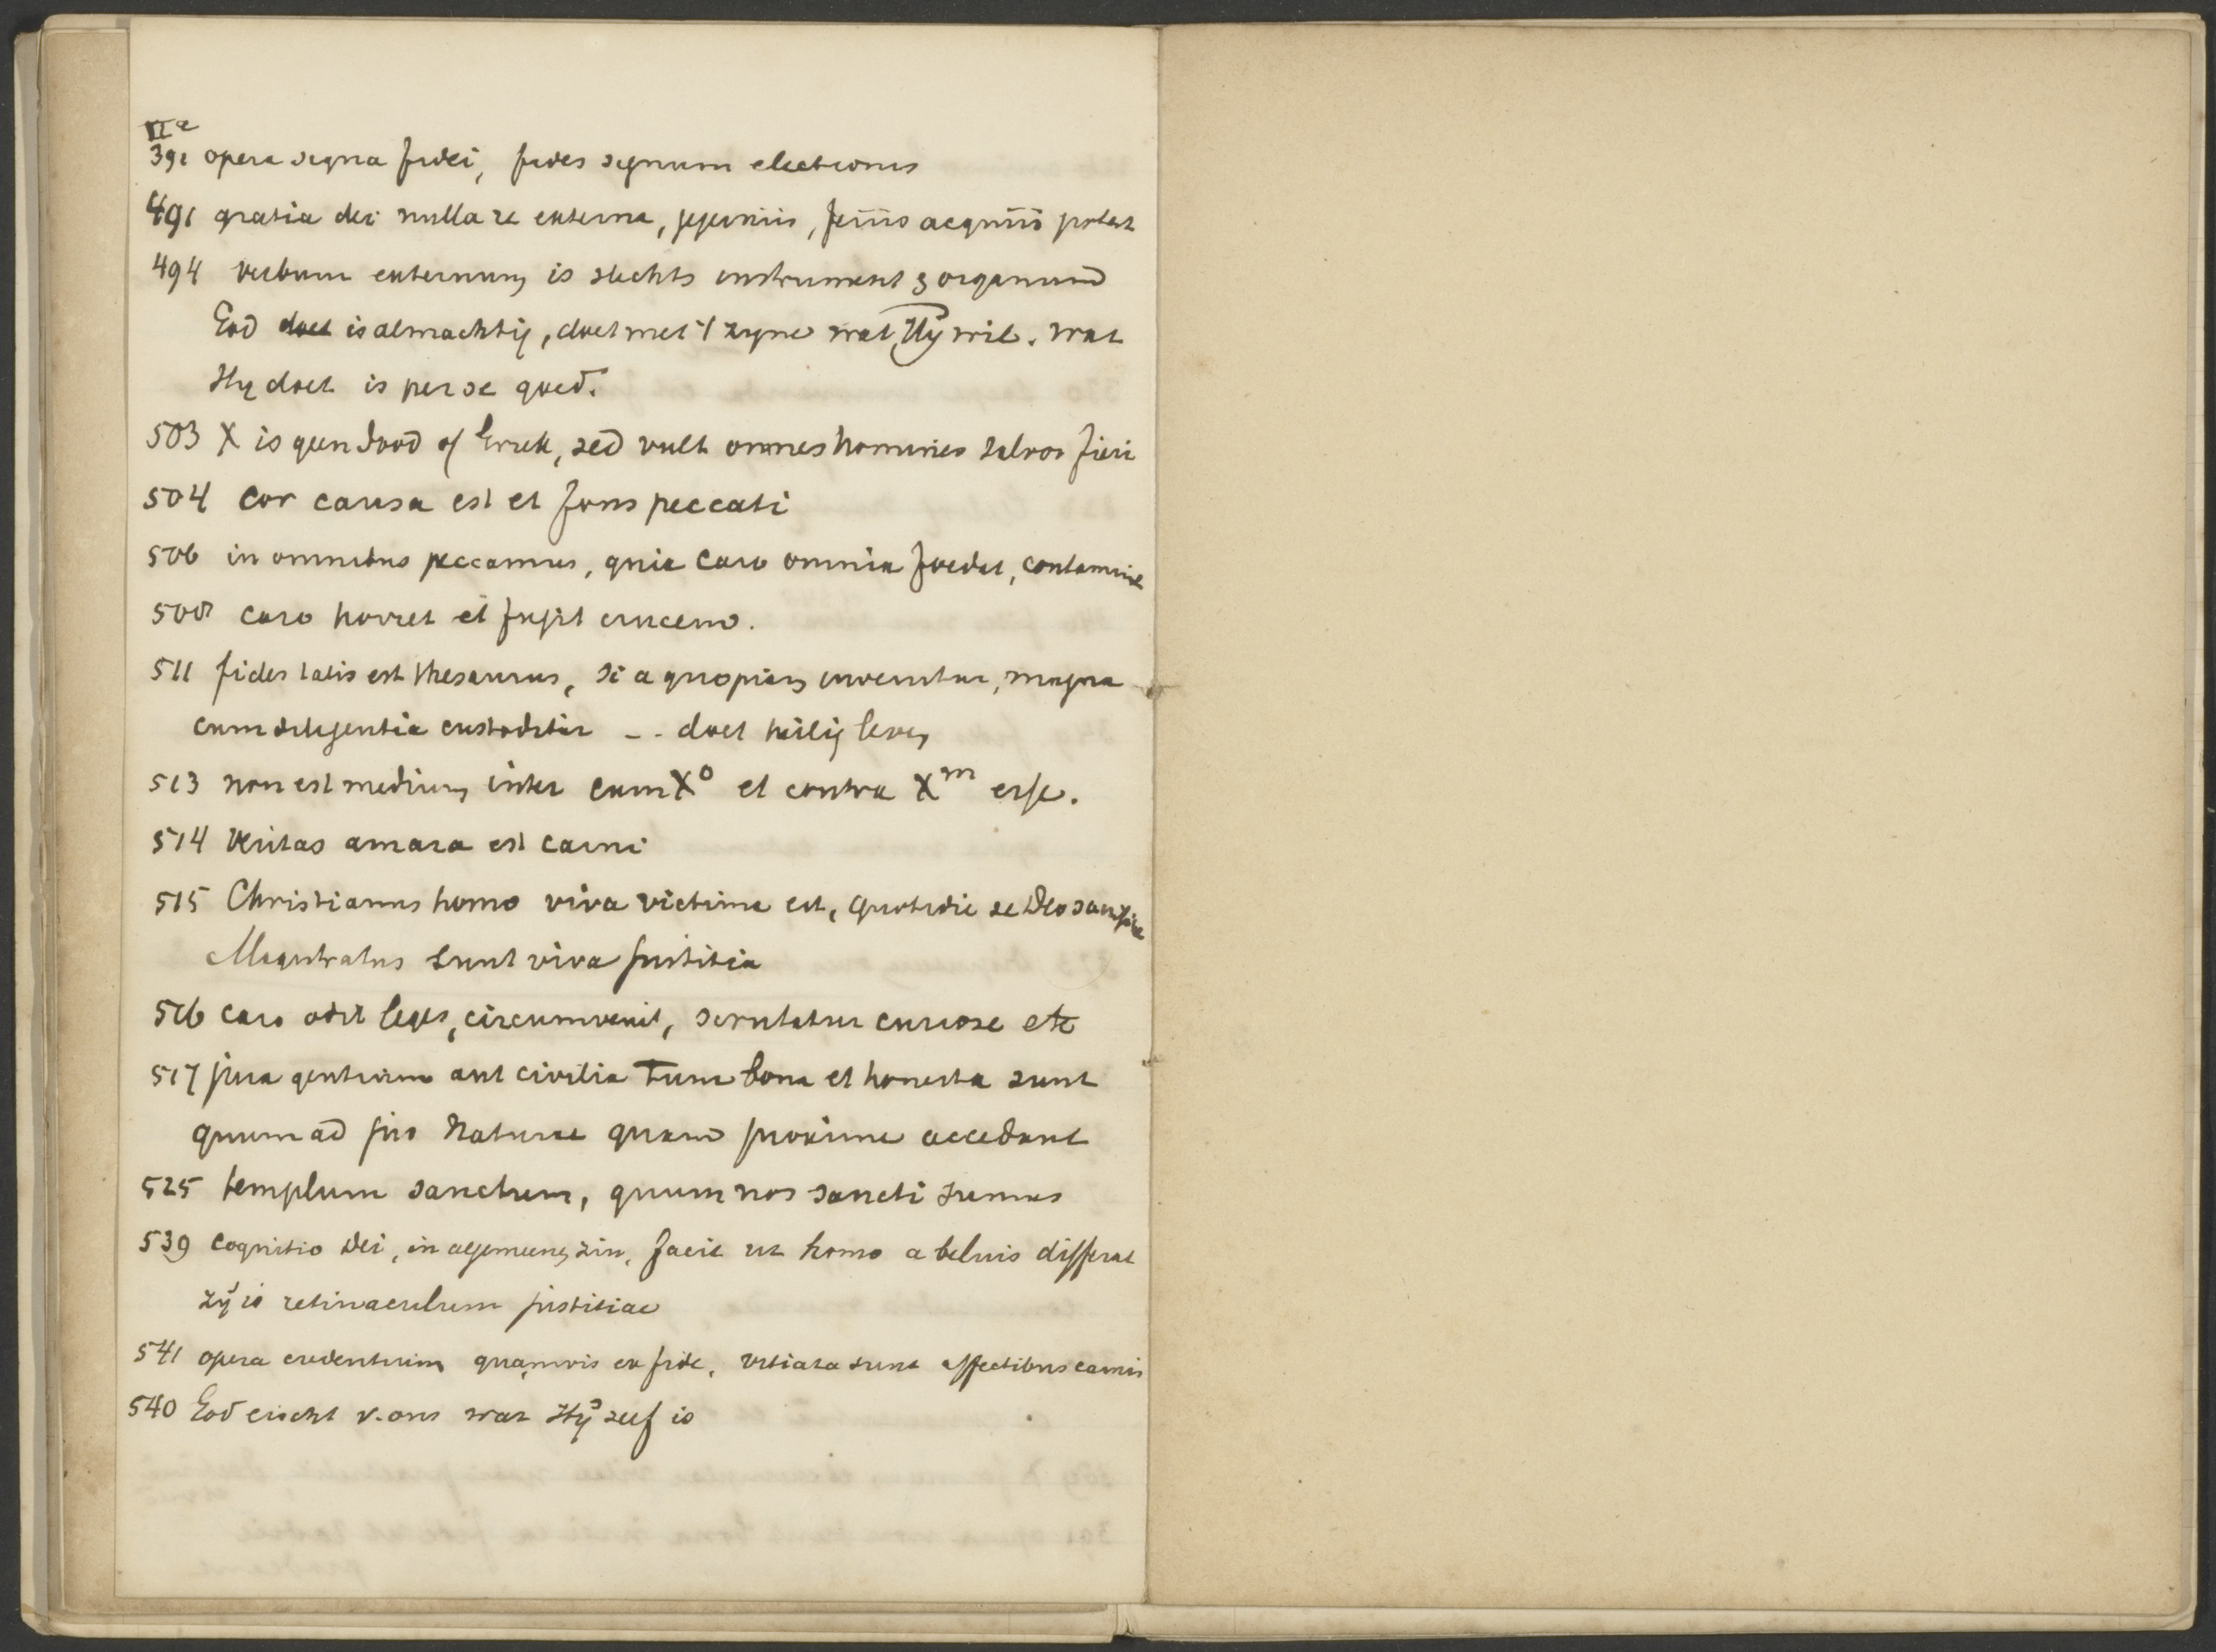 IIa
391 opera signa fidei, fides signum electionis
491 gratia dei nulla re externa, jejuniis, feriis acquiri potest
494 verbum externum is slechts instrument & organum
God doet is almachtig, doet met 't zyne wat Hy wil. Wat
Hy doet is per se goed.
503 X is geen dood of , sed vult omnes homines salvos fieri
504 Cor causa est et fons peccati
506 in omnibus peccamus, quia caro omnia foedat, contamine
508 caro horret et fugit crucem.
511 fides talis est thesaurus, si a quopiam invenitur, magna
cum diligentia custoditur -- doet heilig leven
513 non est medium inter cum X⁰ et contra Xᵐ esse.
514 Veritas amara est carni
515 Christianus homo viva victima est, quotidie se Deo
Magistratus sunt viva justitia
516 caro odit leges, circumvenit, scrutatur curiose etc
517 jura gentium aut civilia tum bona et honesta sunt
quum ad jus naturae quam proxime accedunt
525 templum sanctum, quum nos sancti sumus
539 Cognitio Dei, in algemeenen zin, facit ut homo a beluis differat
zy is retinaculum justitiae
541 opera credentium quamvis ex fide, vitiata sunt affectibus carnis
540 God eischt v. ons wat Hy zelf is